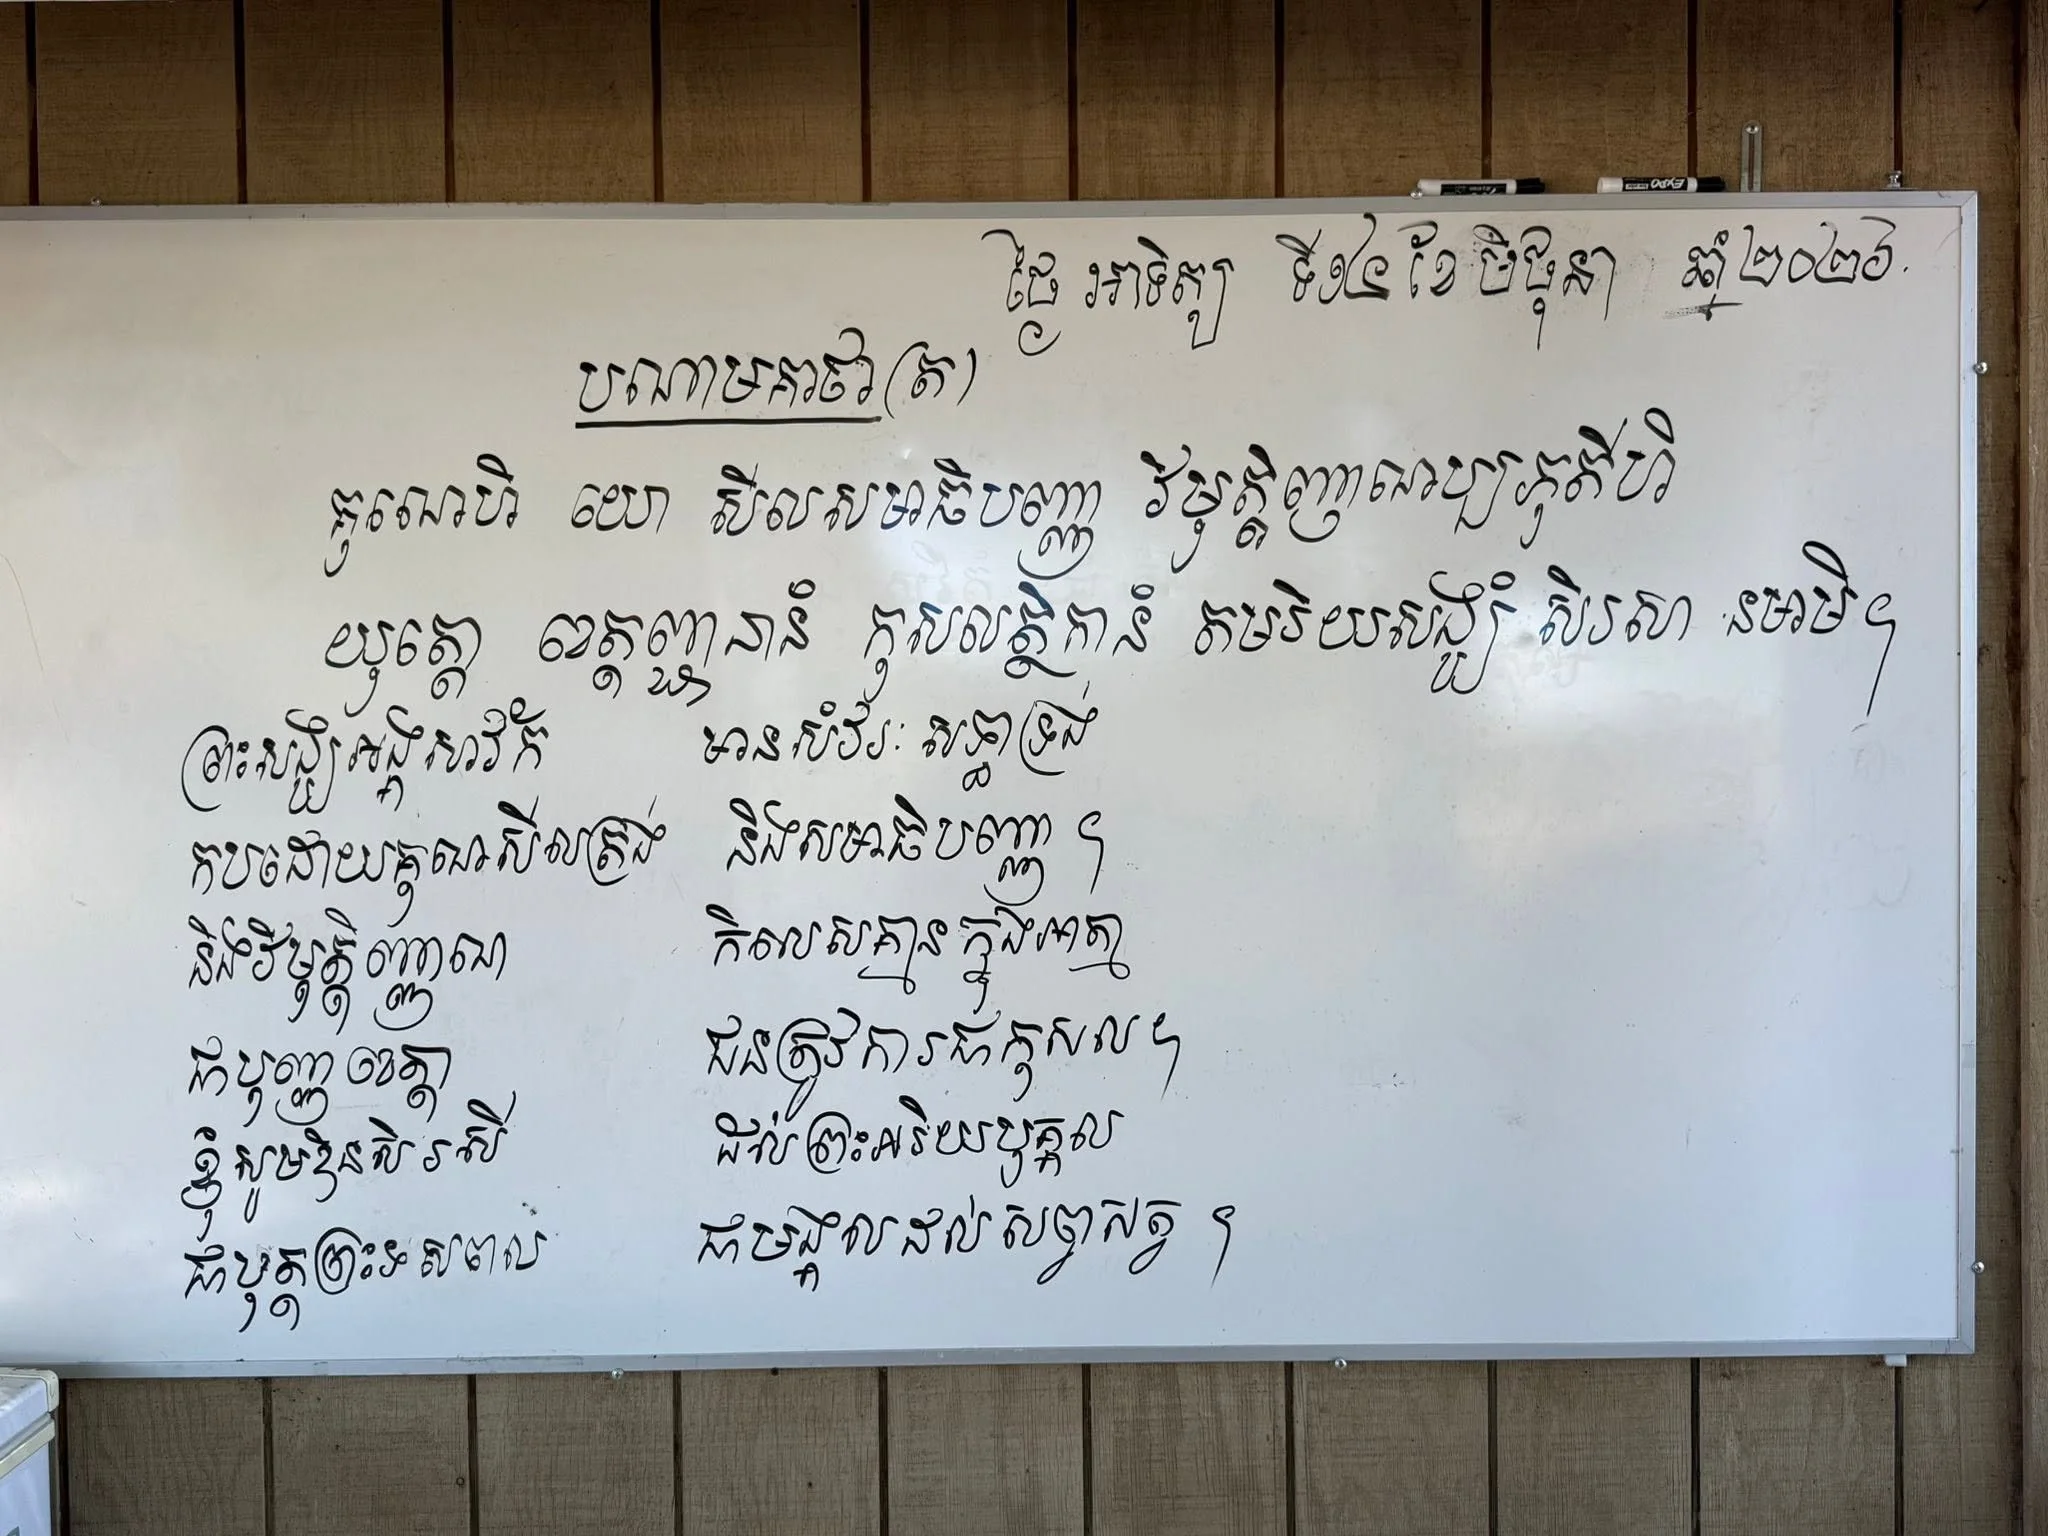 ថ្ងៃ អាទិត្យ ទី១៤ ខែ មិថុនា ឆ្នាំ ២០២៦.
បណាមគាថា (ត)
គុណេហិ យោ សីលសមាធិបញ្ញា វិមុត្តិញាណប្បភូតីហិ
យុត្តោ ខេត្តញ្ជនានំ កុសលត្ថិកានំ តមរិយសង្ឃំ សិរសា នមាមិ។
ព្រះសង្ឃអង្គសាវ័ក មានសំវរៈសទ្ធាទ្រង់
កបដោយគុណសីលត្រង់ និងសមាធិបញ្ញា ។
និងវិមុត្តិញ្ញាណ កិលេសគ្មានក្នុងអាត្មា
ជាបុញ្ញខេត្តា ជនត្រូវការជាកុសល ។
ខ្ញុំសូមឱនសិរសី ដល់ព្រះអរិយបុគ្គល
ជាបុត្តព្រះទសពល ជាមង្គលដល់សព្វសត្វ ។